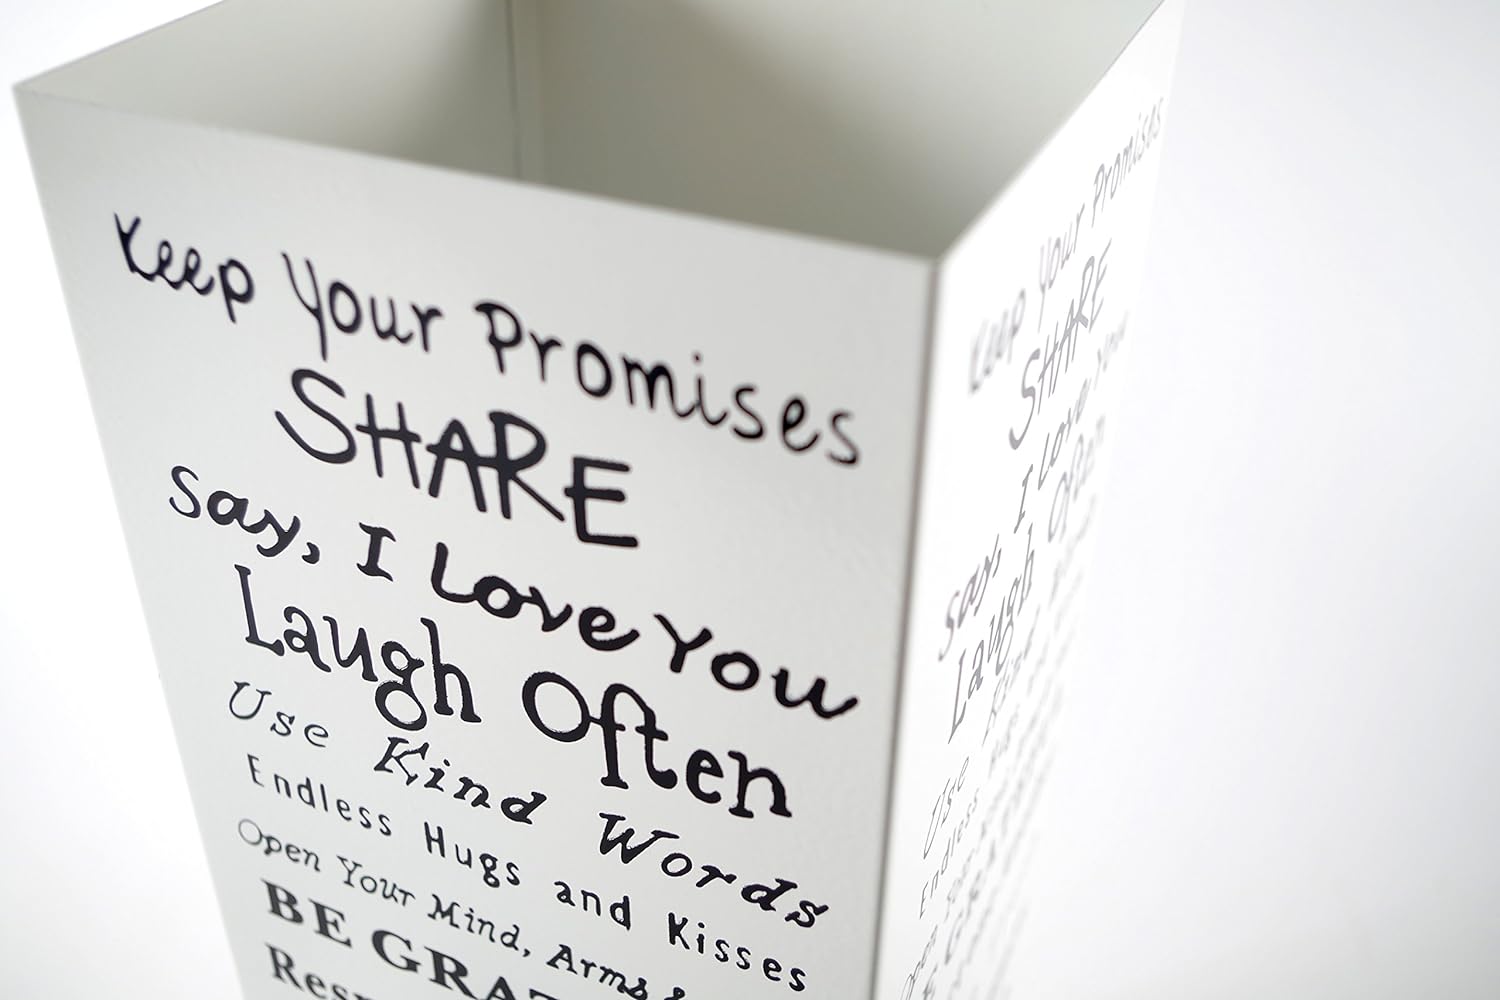 Keep Your Promises
SHARE
Say, I Love You
Laugh Often
Use Kind Words
Endless Hugs and Kisses
Open Your Mind, Arms &
BE
Keep Your Promises
SHARE
Say, I Love You
Laugh Often
Use
Endless